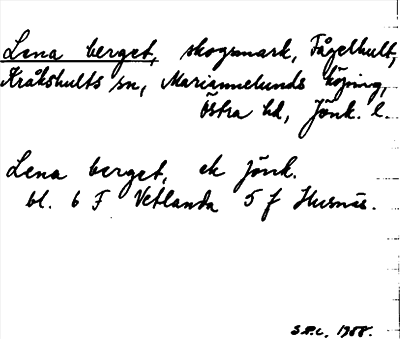 Lena berget, skogsmark, Fågelhult,
Kråkshults sn, Mariannelunds köping,
Östra hd, Jönk. l.
Lena berget, ek Jönk.
bl. 6 F Vetlanda 5 f Husnäs.
S.P.C. 1958.